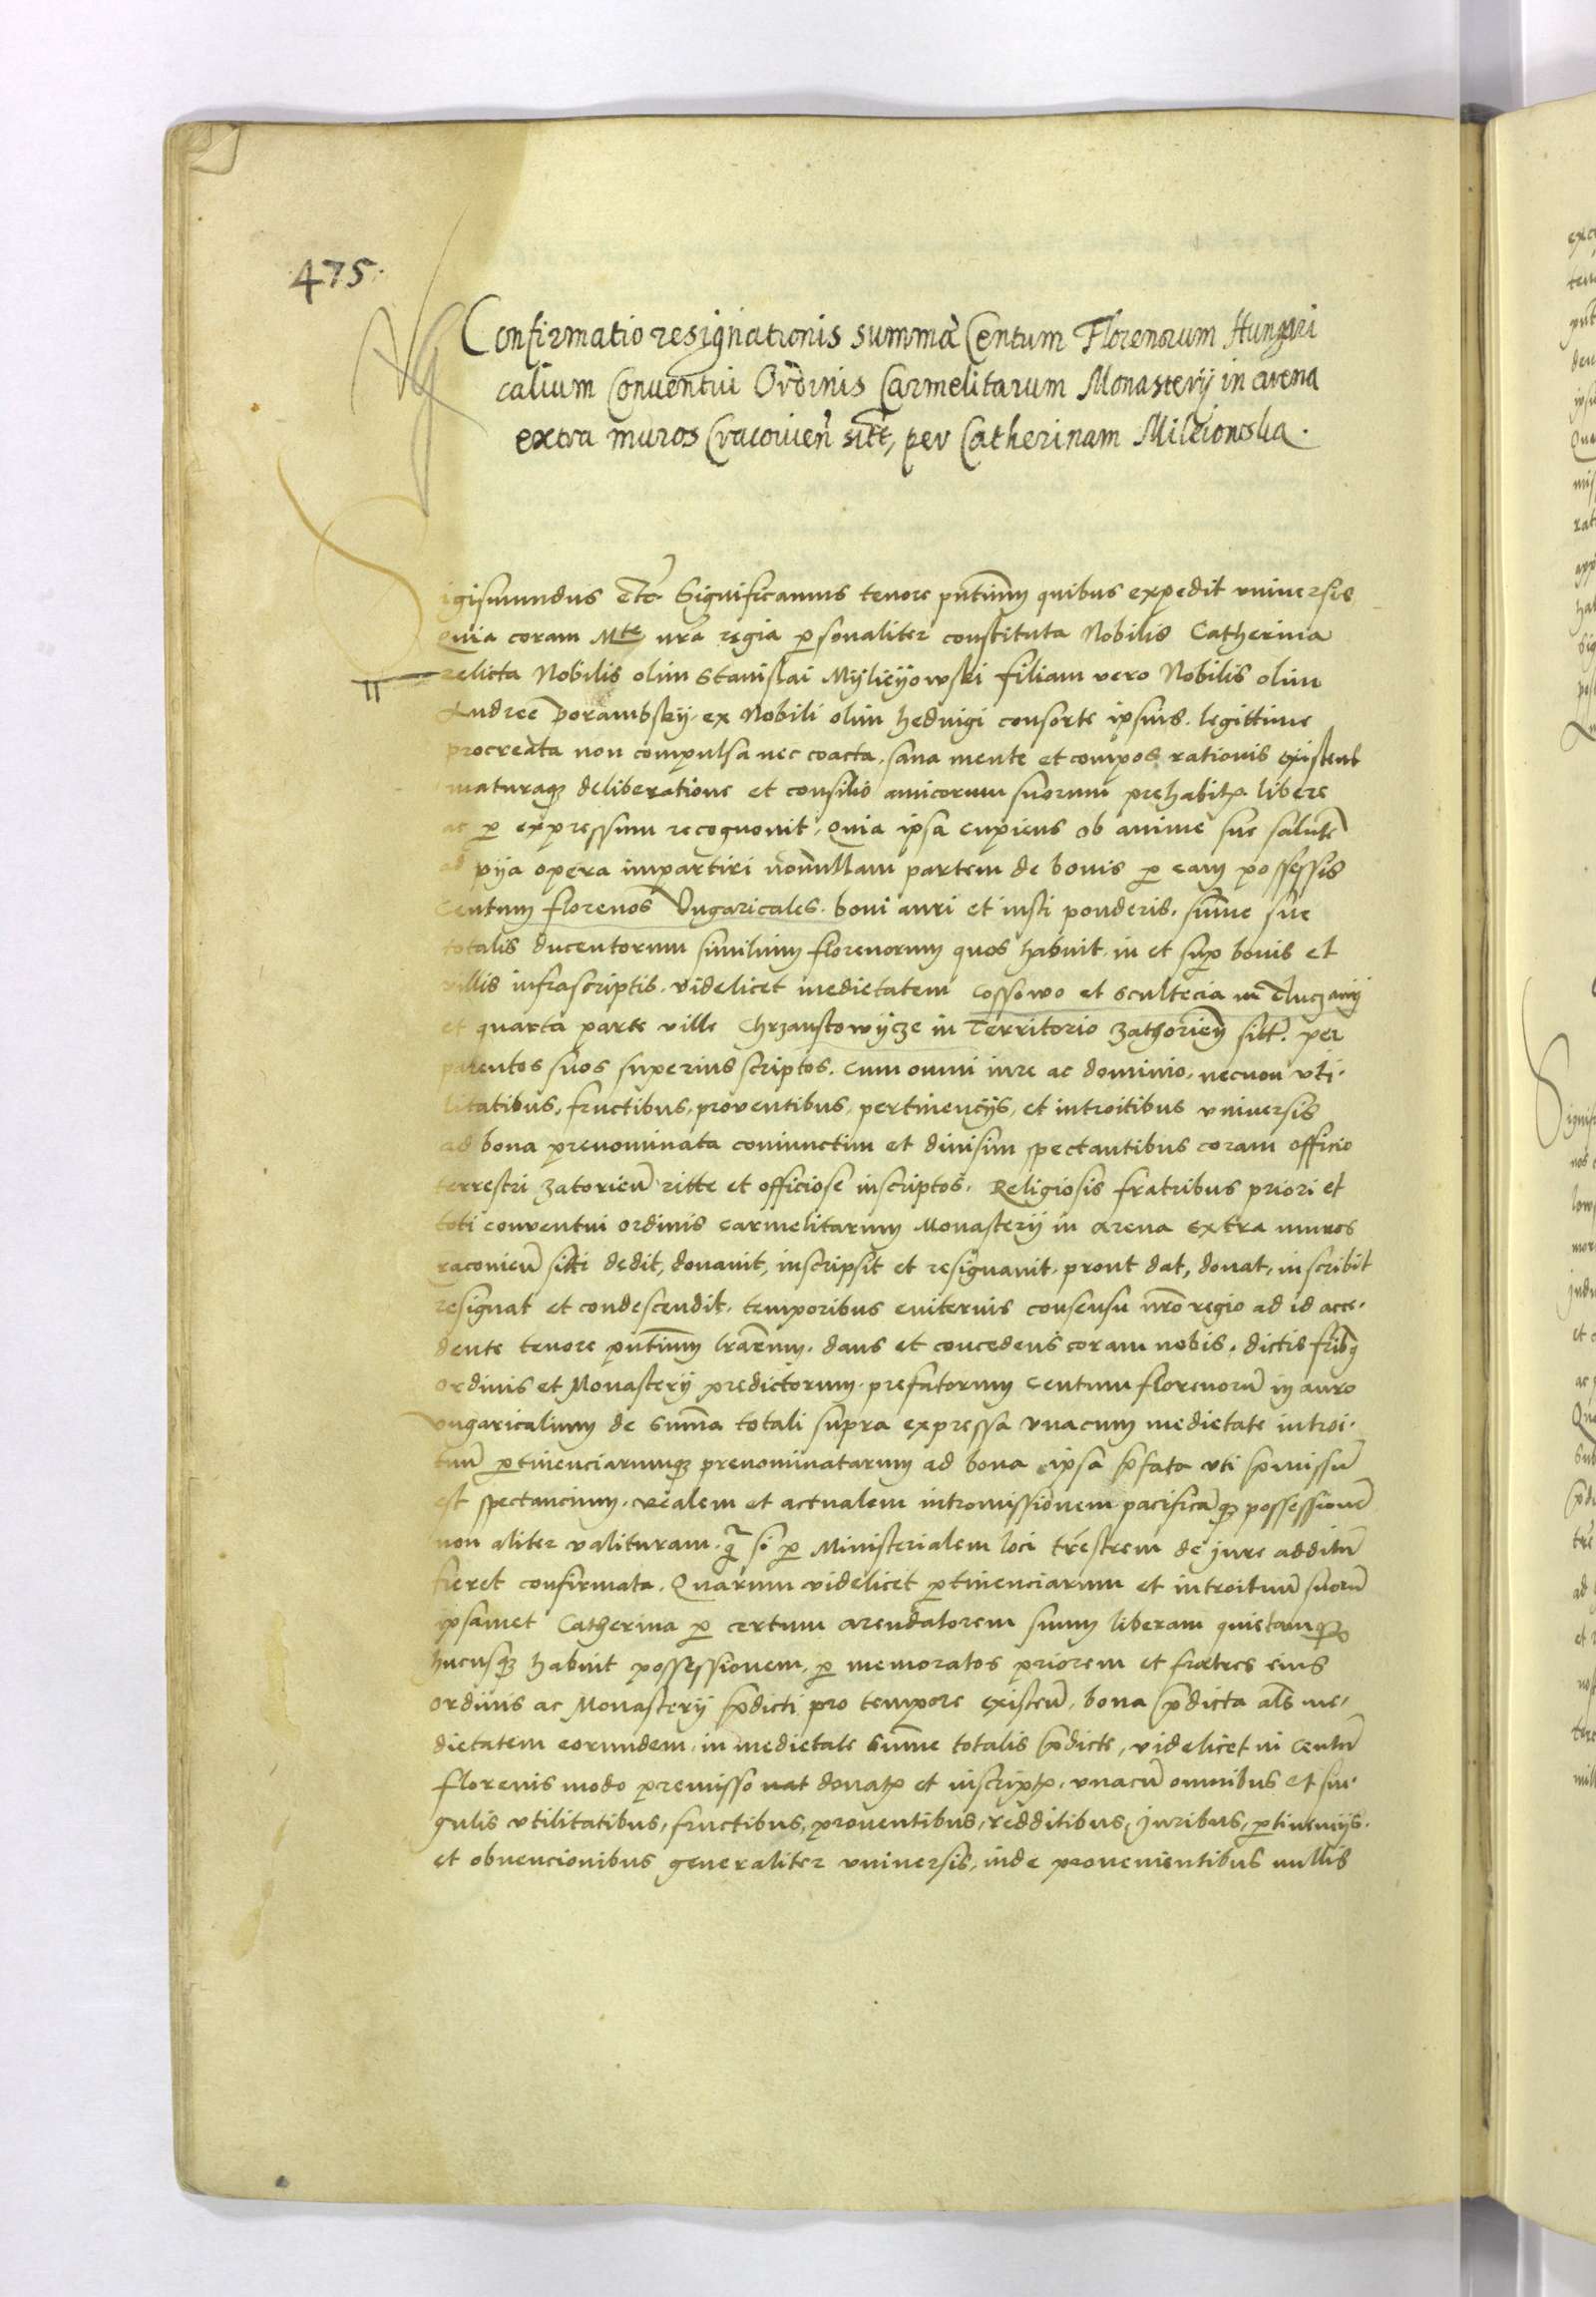 475.
Confirmatio resignationis summa Centum Florenorum Hungari
calium Conventui Ordinis Carmelitarum Monasterij in arena
extra muros Cracovien̄ sitt̄, per Catherinam Mileiowska.
Sigismundus etc̄ Significamus tenore pn̄tium quibus expedit vniversis
Quia coram Mte nr̄a regia personaliter constituta Nobilis Catherina
relicta Nobilis olim Stanislai Mylieyowski filiam vero Nobilis olim
Andree Porambsky ex Nobili olim hedvigi consorte ipsius legittime
procreata non compulsa nec coacta, sana mente et compos rationis existent
maturaqz deliberatione et consilio amicorum suorum prehabito libere
ac per expressum recognovit, Quia ipsa cupiens ob anime sue salutē
ad pya opera impartiri nonnullam partem de bonis per eam possessis
Centum florenos Vngaricales boni auri et iusti ponderis, sum̄e sue
totalis ducentorum similium florenorum quos habuit in et super bonis et
villis infrascriptis videlicet medietatem Cossowo et scultecia in Tluczany
et quarta parte ville Chrzanstowycze in Territorio Zathorien sitt. per
parentes suos superius scriptos, cum omni iure ac dominio, necnon vti-
litatibus, fructibus, proventibus, pertinencijs, et introitibus vniversis
ad bona prenominata coniunctim et divisim spectantibus coram officio
terrestri Zatorien̄ ritte et officiose inscriptos. Religiosis fratribus priori et
toti conventui ordinis carmelitarum Monasterij in arena extra muros
racovien̄ sitti dedit, donavit, inscripsit et resignavit, prout dat, donat, inscribit
resignat et condescendit, temporibus eviternis consensu nr̄o regio ad id acce-
dente tenore pn̄tium lr̄arum, dans et concedens coram nobis, dictis fribq
ordinis et Monasterij predictorum prefatorum centum florenorū in auro
vngaricalium de sum̄a totali supra expressa vnacum medietate introi-
tuū pertinenciarumqz prenominatarum ad bona ipsa p̄fata vti p̄missū
est spectancium, realem et actualem intromissionem pacificāqz possessionē
non aliter valituram q̄ si per Ministerialem loci tr̄estrem de jure additū
fieret confirmata. Quarum videlicet pertinenciarum et introituū suorū
ipsamet Catherina per certum arendatorem suum liberam quietamqz
hucusqz habuit possessionem, per memoratos priorem et fratres eius
ordinis ac Monasterij p̄dicti pro tempore existen̄, bona p̄dicta als̄ me-
dietatem eorundem in medietate sum̄e totalis p̄dicte, videlicet in centū
florenis modo premisso donato et inscripto, vnacū omnibus et sin-
gulis vtilitatibus, fructibus, proventibus, redditibus, juribus, pertinencijs,
et obvencionibus generaliter vniversis, inde provenientibus nullis